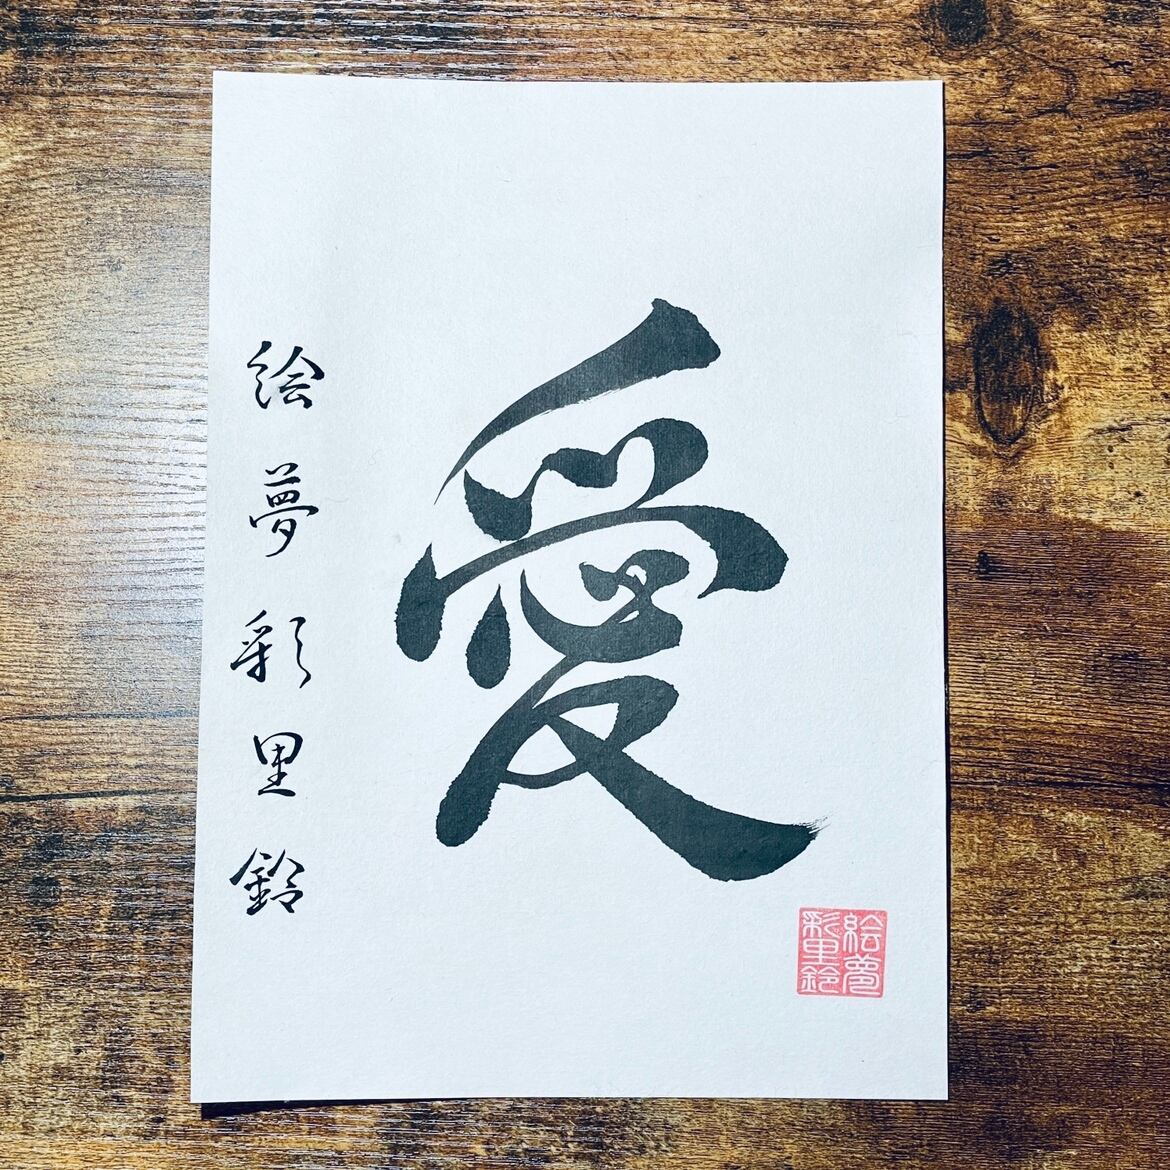 愛
絵夢彩里鈴
絵夢
彩里鈴